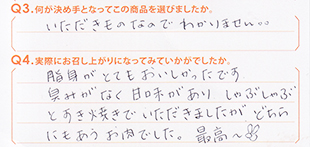 Q3.何が決め手となってこの商品を選びましたか。
いただきものなのでわかりません。。
Q4.実際にお召し上がりになってみていかがでしたか。
脂身がとてもおいしかったです
臭みがなく甘味があり しゃぶしゃぶ
とすき焼きでいただきましたが どちら
にもあうお肉でした。最高〜